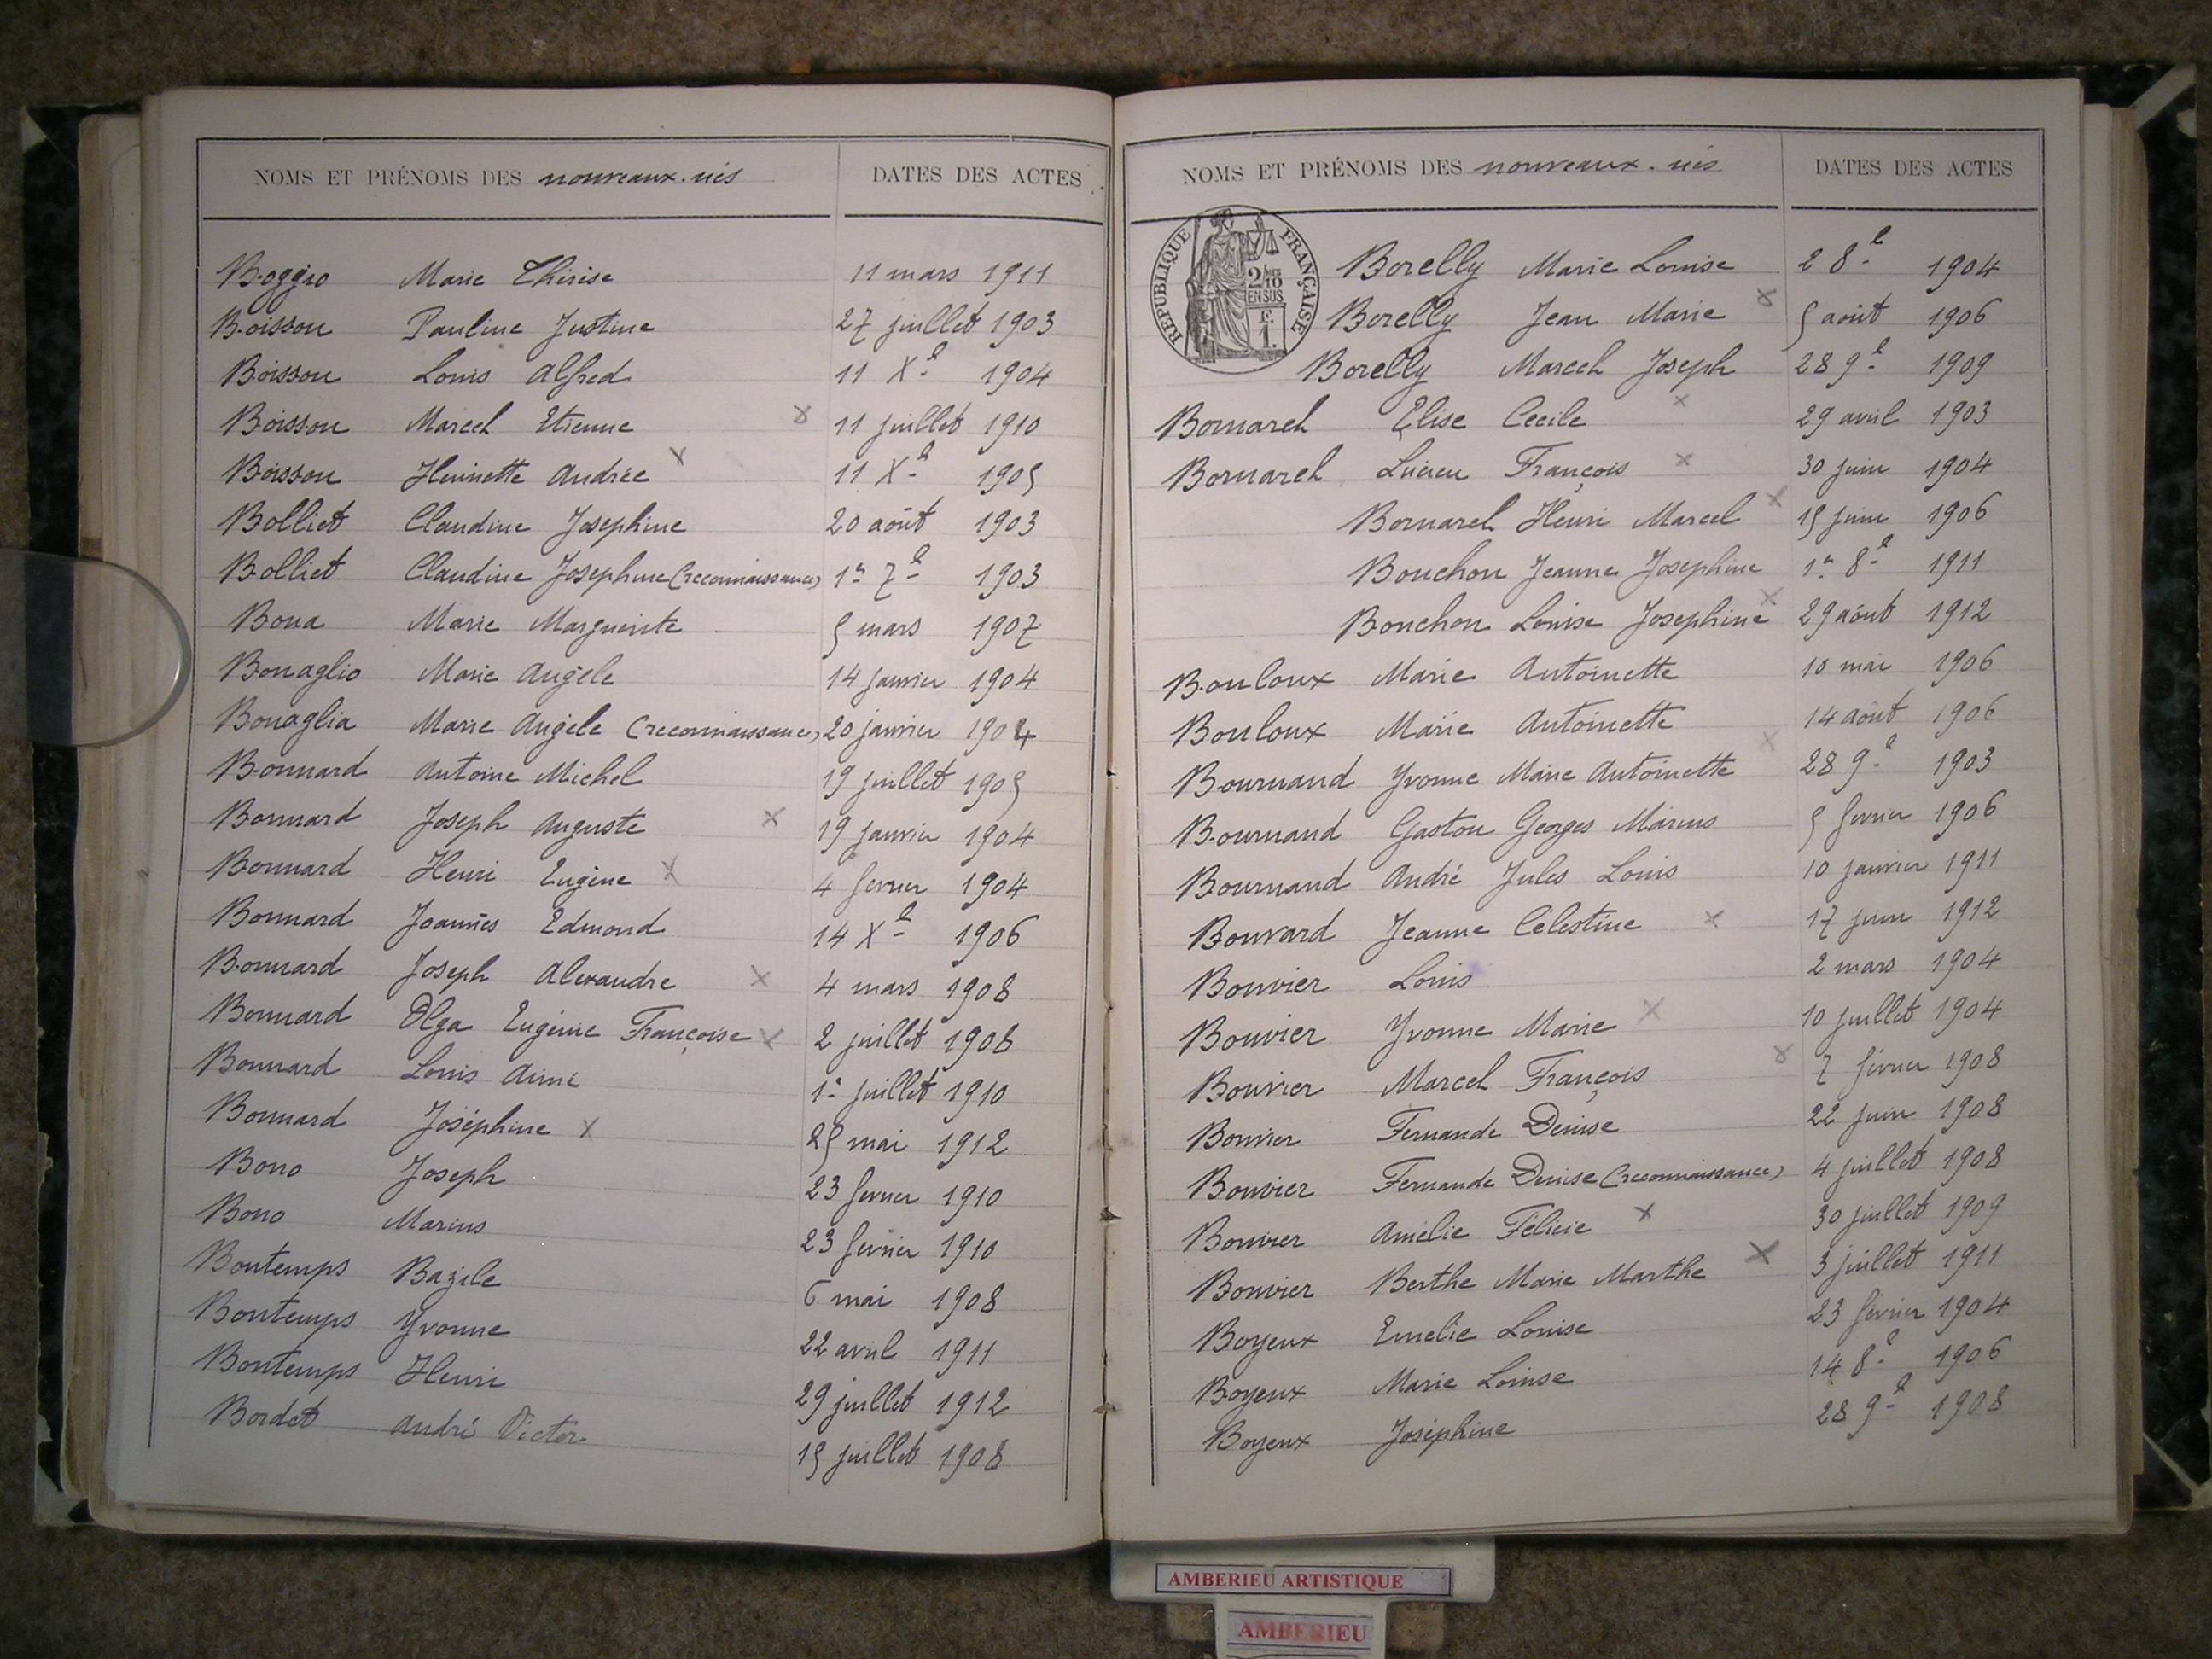 NOMS ET PRÉNOMS DES nouveaux-nés DATES DES ACTES
Boggio Marie Thérèse 11 mars 1911
Boisson Pauline Justine 27 juillet 1903
Boisson Louis Alfred 11 Xe 1904
Boisson Marcel Etienne x 11 juillet 1910
Boisson Henriette Andrée x 11 Xe 1905
Bolliet Claudine Josephine 20 août 1903
Bolliet Claudine Josephine (reconnaissance) 1er 7e 1903
Bona Marie Marguerite 5 mars 1907
Bonaglio Marie Angèle 14 janvier 1904
Bonaglia Marie Angèle (reconnaissance) 20 janvier 1904
Bonnard Antoine Michel 19 juillet 1905
Bonnard Joseph Auguste x 19 janvier 1904
Bonnard Henri Eugène x 4 fevrier 1904
Bonnard Joannès Edmond 14 Xe 1906
Bonnard Joseph Alexandre x 4 mars 1908
Bonnard Olga Eugénie Françoise x 2 juillet 1908
Bonnard Louis Aimé 1er juillet 1910
Bonnard Joséphine x 25 mai 1912
Bono Joseph 23 fevrier 1910
Bono Marius 23 fevrier 1910
Bontemps Bazile 6 mai 1908
Bontemps Yvonne 22 avril 1911
Bontemps Henri 29 juillet 1912
Bordet André Victor 15 juillet 1908
NOMS ET PRÉNOMS DES nouveaux-nés DATES DES ACTES
RÉPUBLIQUE FRANÇAISE
2/10
EN SUS
F.
1.
Borelly Marie Louise 2 8e 1904
Borelly Jean Marie x 5 août 1906
Borelly Marcel Joseph 28 9e 1909
Bornarel Elise Cecile x 29 avril 1903
Bornarel Lucien François x 30 juin 1904
Bornarel Henri Marcel x 15 juin 1906
Bouchon Jeanne Josephine 1er 8e 1911
Bouchon Louise Josephine x 29 août 1912
Bouloux Marie Antoinette 10 mai 1906
Bouloux Marie Antoinette 14 août 1906
Bournand Yvonne Marie Antoinette x 28 9e 1903
Bournand Gaston Georges Marius 5 fevrier 1906
Bournand André Jules Louis 10 janvier 1911
Bouvard Jeanne Celestine x 17 juin 1912
Bouvier Louis 2 mars 1904
Bouvier Yvonne Marie x 10 juillet 1904
Bouvier Marcel François x 7 février 1908
Bouvier Fernande Denise 22 juin 1908
Bouvier Fernande Denise (reconnaissance) 4 juillet 1908
Bouvier Amélie Félicie x 30 juillet 1909
Bouvier Berthe Marie Marthe x 3 juillet 1911
Boyeux Emelie Louise 23 février 1904
Boyeux Marie Louise 14 8e 1906
Boyeux Joséphine 28 9e 1908
AMBERIEU ARTISTIQUE
AMBERIEU